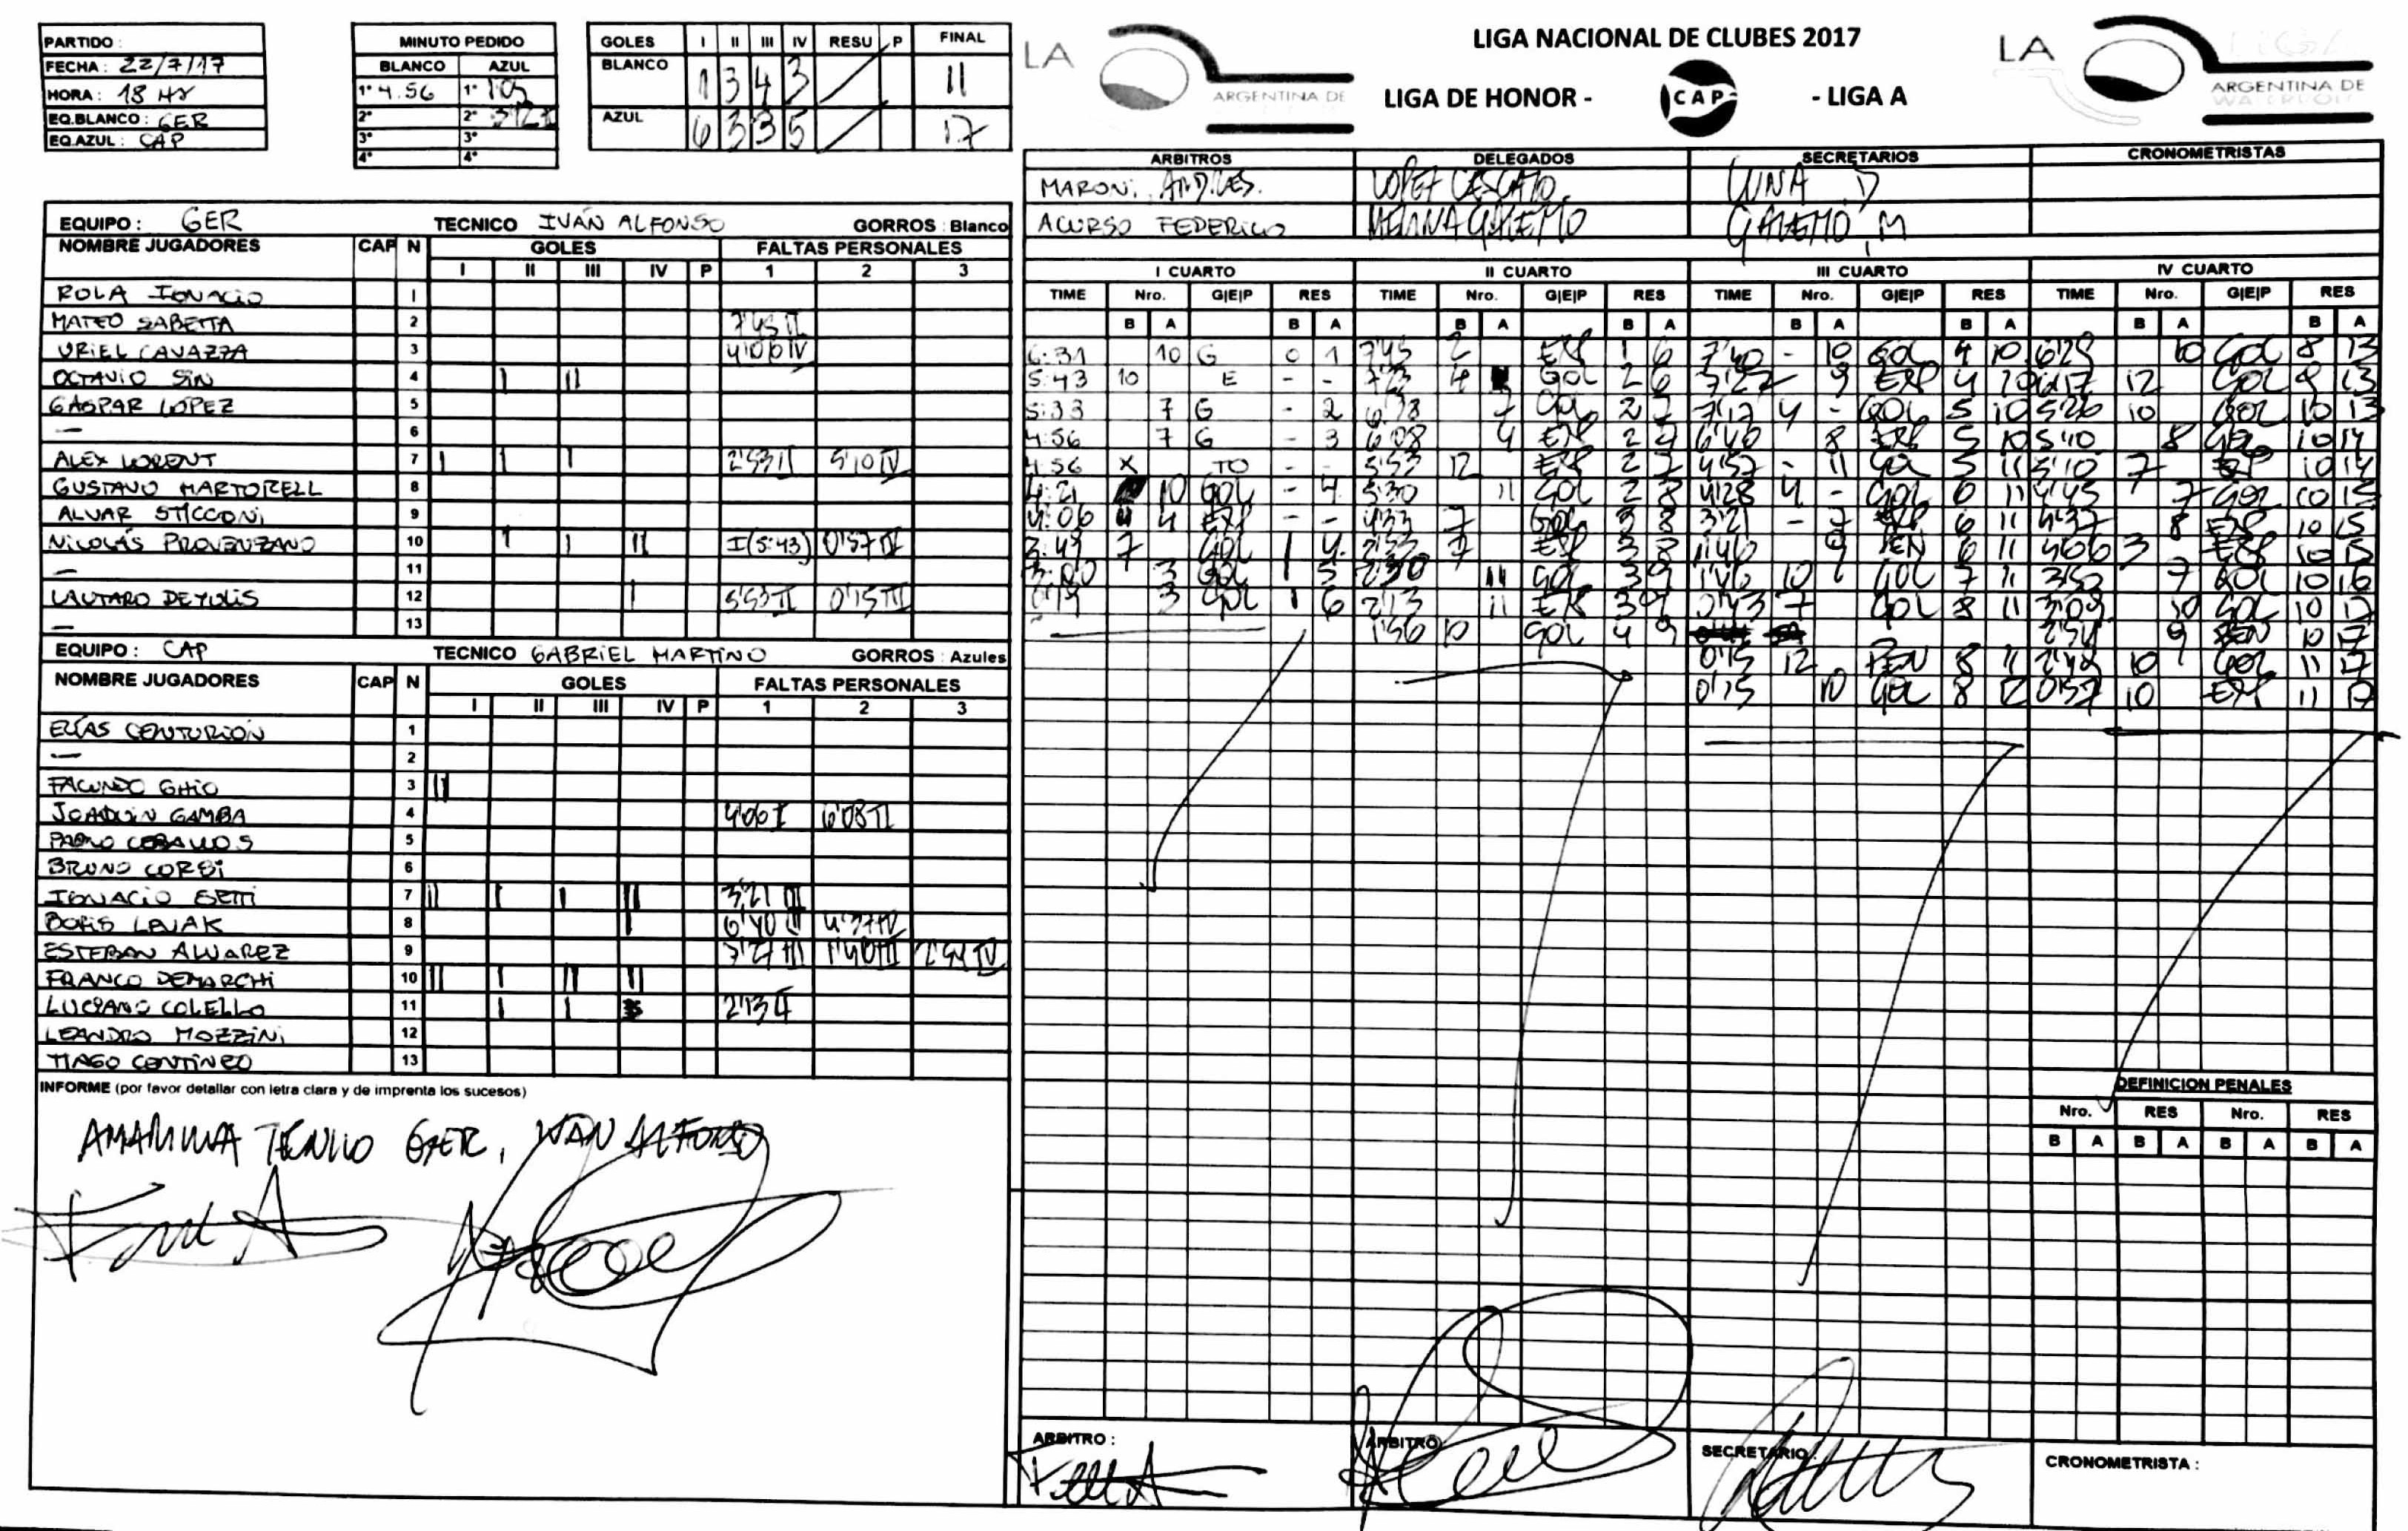 PARTIDO :
FECHA : 22/7/17
HORA : 18 Hs
EQ.BLANCO : GER
EQ.AZUL : CAP
MINUTO PEDIDO
BLANCO AZUL
1° 4.56 1° 1'05
2° 2°
3° 3°
4° 4°
GOLES I II III IV RESU P FINAL
BLANCO 1 3 4 3 11
AZUL 6 3 3 5 17
LA
ARGENTINA DE
LIGA NACIONAL DE CLUBES 2017
LIGA DE HONOR - CAP - LIGA A
LA LIGA
ARGENTINA DE
WATERPOLO
ARBITROS DELEGADOS SECRETARIOS CRONOMETRISTAS
MARONI ANDRES. LOPEZ LUNA D
ACURSO FEDERICO GALETTO GALETTO, M
EQUIPO : GER TECNICO IVÁN ALFONSO GORROS : Blanco
NOMBRE JUGADORES CAP N GOLES FALTAS PERSONALES
I II III IV P 1 2 3
ROLA IGNACIO 1
MATEO SABETTA 2 7'45 II
URIEL CAVAZZA 3 4'06 IV
OCTAVIO SIN 4 I II
GASPAR LOPEZ 5
— 6
ALEX LORENT 7 I I I 2'53 II 5'10 IV
GUSTAVO MARTORELL 8
ALVAR STICCONI 9
NICOLÁS PROVENZANO 10 I I II I(5:43) 0'57 IV
— 11
LAUTARO DEYULIS 12 I 5'53 II 0'15 III
— 13
EQUIPO : CAP TECNICO GABRIEL MARTINO GORROS : Azules
NOMBRE JUGADORES CAP N GOLES FALTAS PERSONALES
I II III IV P 1 2 3
ELÍAS CENTURIÓN 1
— 2
FACUNDO GHIO 3 II
JOAQUIN GAMBA 4 4'06 I 6'08 II
PABLO CEBALLOS 5
BRUNO CORBI 6
IGNACIO 7 II I I II 3'21 III
BORIS LEJAK 8 I 6'40 III 4'37 IV
ESTEBAN ALVAREZ 9 7'27 III 1'40 III 2'54 IV
FRANCO DEMARCHI 10 II I II II
LUCIANO COLELLO 11 I I 2'13 II
LEANDRO MOZZINI 12
TIAGO CONTINEO 13
INFORME (por favor detallar con letra clara y de imprenta los sucesos)
AMARILLA TECNICO GER, IVAN ALFONSO
I CUARTO II CUARTO III CUARTO IV CUARTO
TIME Nro. G|E|P RES TIME Nro. G|E|P RES TIME Nro. G|E|P RES TIME Nro. G|E|P RES
B A B A B A B A B A B A B A B A
6:31 10 G 0 1 7'45 2 EXP 1 6 7'40 - 10 GOL 4 10 6'29 10 GOL 8 13
5:43 10 E - - 7'23 4 GOL 2 6 7'27 - 9 EXP 4 10 6'17 12 GOL 9 13
5:33 7 G - 2 6'38 7 GOL 2 7 7'17 4 - GOL 5 10 5'26 10 GOL 10 13
4:56 7 G - 3 6'08 4 EXP 2 7 6'40 - 8 EXP 5 10 5'10 8 GOL 10 14
4:56 X TO - - 5'53 12 EXP 2 7 4'57 - 11 GOL 5 11 5'10 7 EXP 10 14
4:21 10 GOL - 4 5'30 11 GOL 2 8 4'28 4 - GOL 6 11 4'45 7 GOL 10 15
4:06 4 EXP - - 4'33 7 GOL 3 8 3'21 - 7 EXP 6 11 4'37 8 EXP 10 15
3:49 7 GOL 1 4 2'53 7 EXP 3 8 1'40 9 PEN 6 11 4'06 3 EXP 10 15
3:00 3 GOL 1 5 2'30 11 GOL 3 9 1'40 10 GOL 7 11 3'52 7 GOL 10 16
0:19 3 GOL 1 6 2'13 11 EXP 3 9 0'43 7 GOL 8 11 3'09 10 GOL 10 17
1'56 10 GOL 4 9 2'54 9 PEN 10 17
0'15 12 PEN 8 11 2'48 10 GOL 11 17
0'15 10 GOL 8 12 0'57 10 EXP 11 17
DEFINICION PENALES
Nro. RES Nro. RES
B A B A B A B A
ARBITRO : ARBITRO SECRETARIO : CRONOMETRISTA :